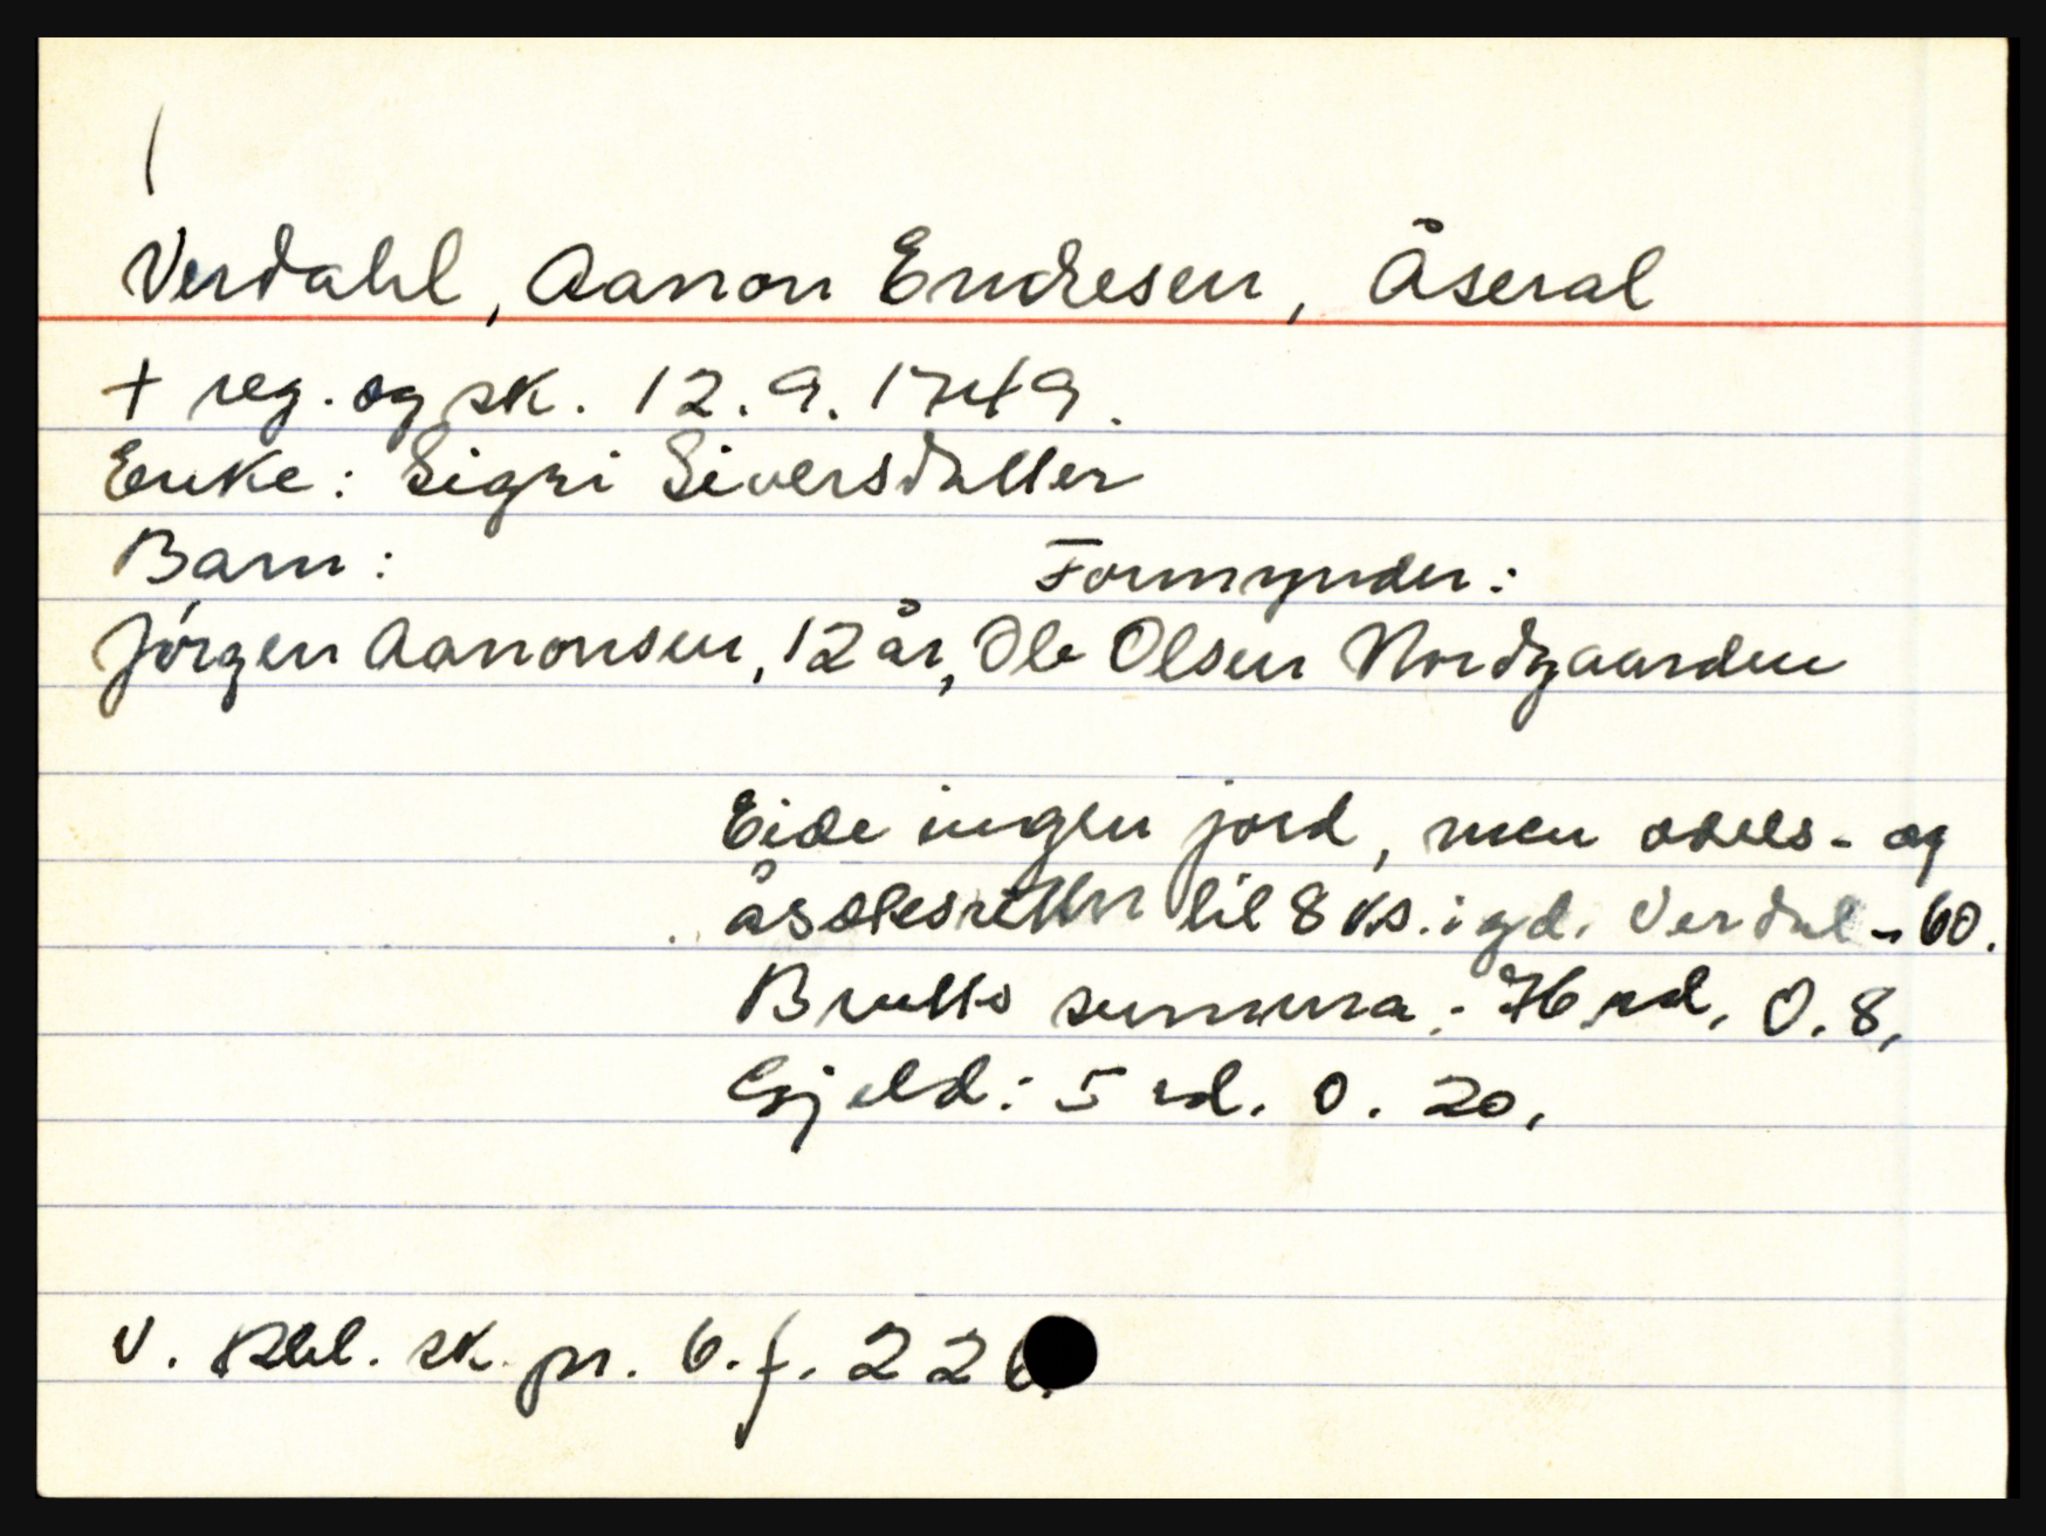 Verdahl, Aanon Endresen, Åseral
+ reg. og sk. 12.9.1749.
Enke: Sigri Siversdatter
Barn: Formynder:
Jórgen Aanonsen, 12 år, Ole Olsen Nordgaarden
Eide ingen jord, men odels- og
åsetesretten til 8 ks. i gd. Verdal - 60.
Brutto summa: 76 rd, 0.8,
Gjeld: 5 rd. 0. 20,
V. Rbl. sk. pr. 6. f. 226.